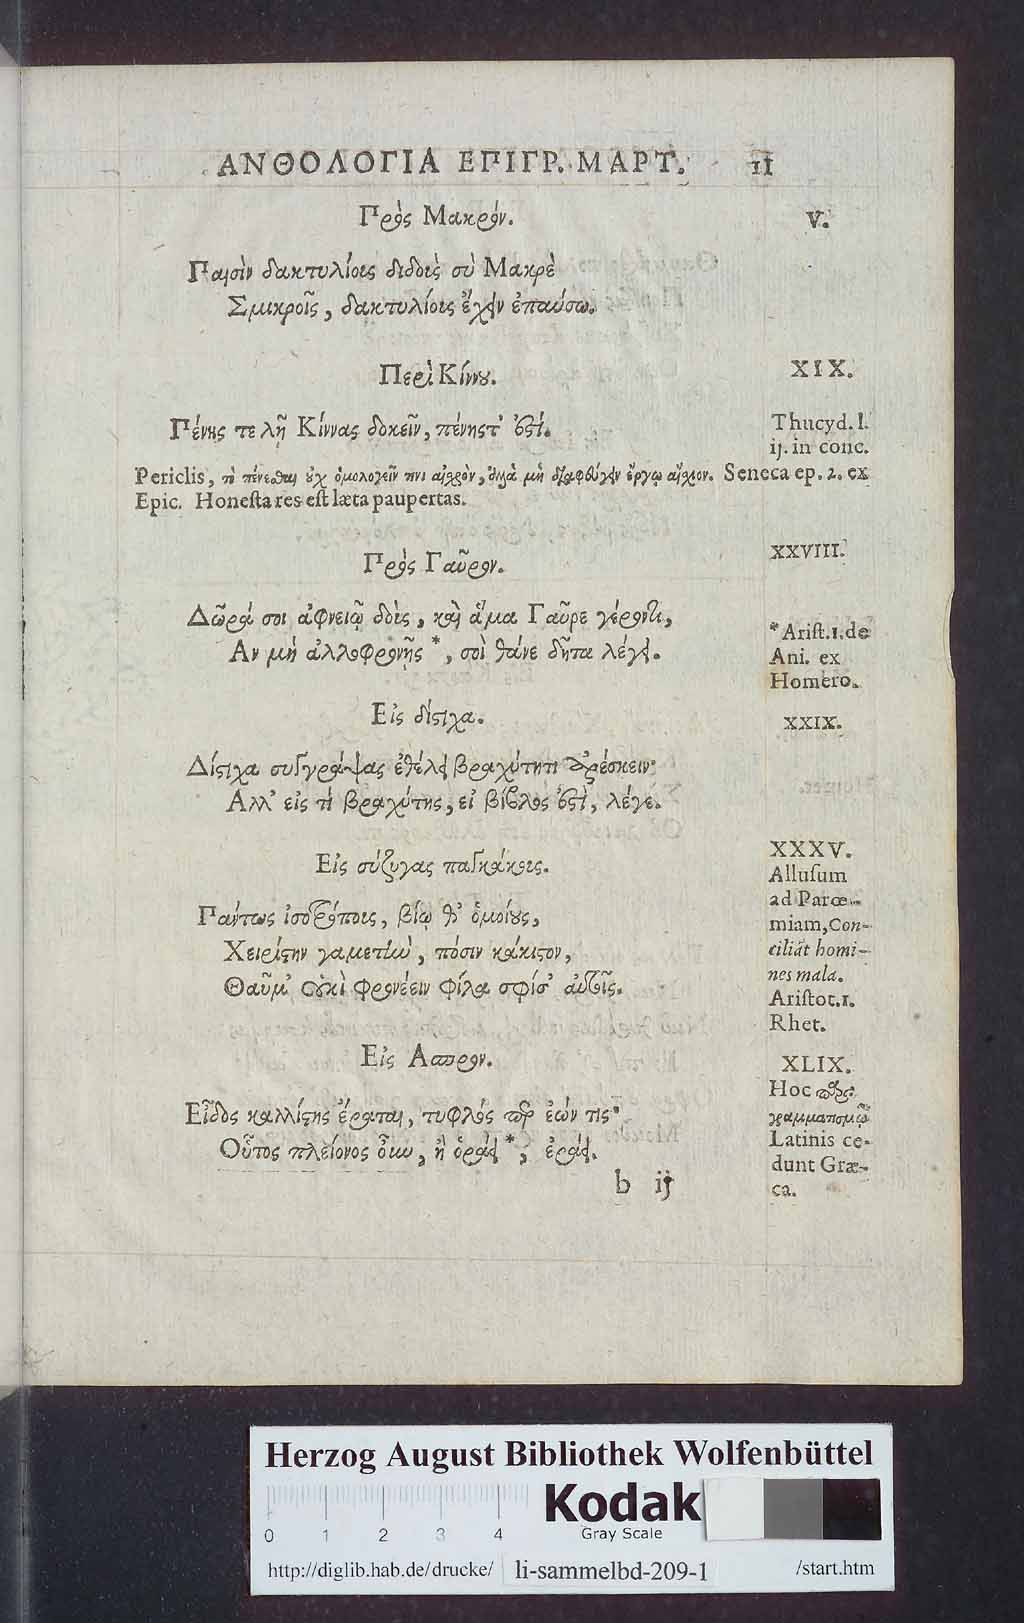 ΑΝΘΟΛΟΓΙΑ ΕΠΙΓΡ. ΜΑΡΤ. 11
Πρὸς Μακρόν. V.
Παισὶν δακτυλίοις διδοὶς σὺ Μακρὲ
Σμικροῖς, δακτυλίοις ἔχειν ἐπαύσω.
Περὶ Κίννου. XIX.
Πένης τε λῇ Κίννας δοκεῖν, πένηςτ' ἐστί.
Thucyd. l.
ij. in conc.
Periclis, τὸ πένεσθαι οὐχ ὁμολογεῖν τινι αἰσχρὸν, ἀλλὰ μὴ διαφθύγειν ἔργῳ αἴσχιον. Seneca ep. 2. ex
Epic. Honesta res est læta paupertas.
Πρὸς Γαῦρον. XXVIII.
Δῶρά σοι ἀφνειῷ δοὶς, καὶ ἅμα Γαῦρε γέροντι,
Αν μὴ ἀλλοφρονῇς *, σοὶ θάνε δῆτα λέγει.
* Arist. 1. de
Ani. ex
Homero.
Εἰς δίστιχα. XXIX.
Δίστιχα συγγράψας ἐθέλει βραχύτητι ἀρέσκειν·
Αλλ' εἰς τί βραχύτης, εἰ βίβλος ἐστὶ, λέγε.
Εἰς σύζυγας παγκάκους. XXXV.
Allusum
ad Parœ-
miam, Con-
ciliāt homi-
nes mala.
Aristot. 1.
Rhet.
Πάντως ἰσοτρόποις, βίῳ θ' ὁμοίους,
Χειρίστην γαμετὴν, πόσιν κάκιστον,
Θαῦμ' οὐκὶ φρονέειν φίλα σφίσ' αὐτοῖς.
Εἰς Ασπρον. XLIX.
Hoc
γραμματισμῷ
Latinis ce-
dunt Græ-
ca.
Εἶδος καλλίστης ἔραται, τυφλός περ ἐών τις·
Οὗτος πλείονος οὖν, ἢ ὁράει *, ἐράει.
b ij
Herzog August Bibliothek Wolfenbüttel
Kodak
Gray Scale
0 1 2 3 4
http://diglib.hab.de/drucke/ li-sammelbd-209-1 /start.htm